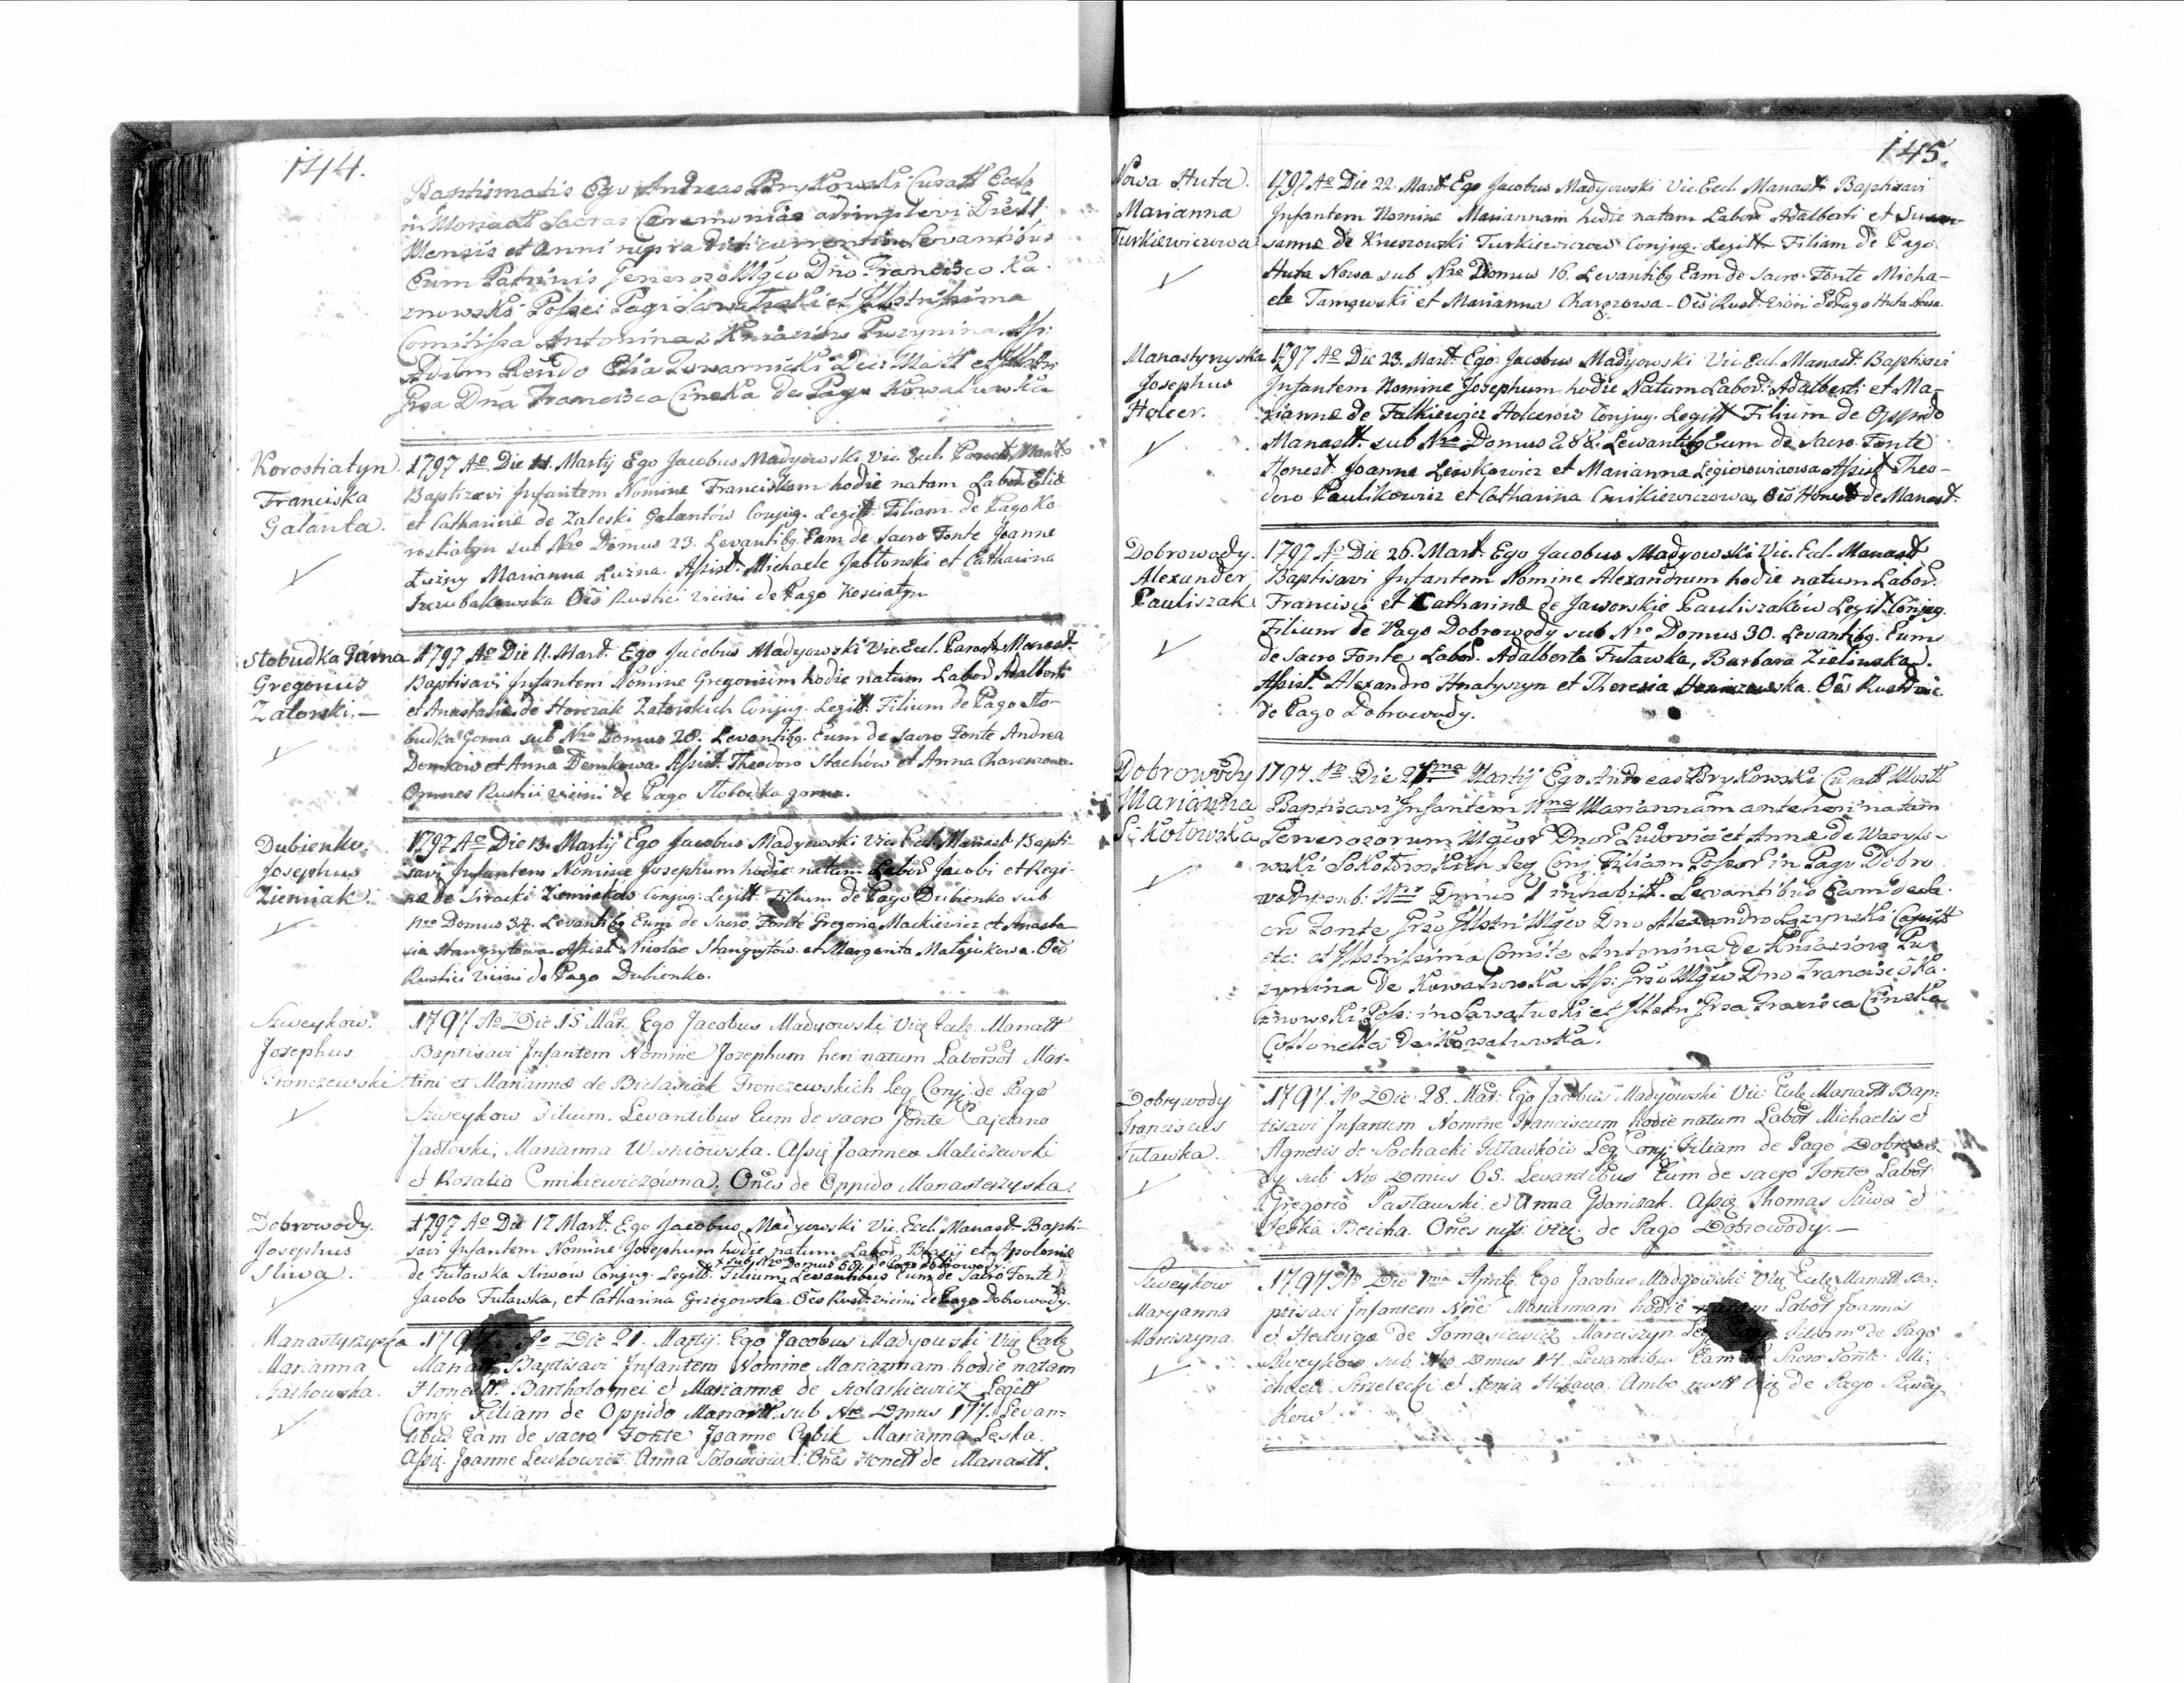 144.
Baptismatis Ego Andreas Brykowski Curatt Eccle
in Monastt Sacras Ceremonias adimplevi Die 11
Mensis et Anni supra dicti currentis Levantibus
Eum Patrinis Generoso Mgco Dno Francisco Ka-
znowski Possri Pagi et Illstrissima
Comitissa Antonina z Kniaziów Puzynina Ass:
Adum Rendo Elia Towarnicki Dec: Mastt et Illstri
Grsa Dna Francisca Cinska de Pago Kowalowka
Korostiatyn.
Franciska
Galánta.
1797 Ao Die 11. Martÿ Ego Jacobus Madyowski Vic. Eccl. Paroch. Manast
Baptizavi Infantem Nomine Franciskam hodie natam Labor Eliæ
et Catharinæ de Zaleski Galantów Conjug. Legitt. Filiam de Pago Ko-
rostiatyn sub Nro Domus 23. Levantibq. Eam de Sacro Fonte Joanne
Łuzny Marianna Luzna. Assist. Michaele Jabłonski et Catharina
Oēs Rustici vicini de Pago Kosciatyn
Słobudka Górna
Gregorius
Zatorski. —
1797 Ao Die 11. Mart. Ego Jacobus Madyowski Vic. Eccl. Paroch. Manast.
Baptisavi Infantem Nomine Gregorium hodie natum Labor Adalberti
et Anastasiæ de Horczak Zatorskich Conjug. Legitt. Filium de Pago Sło-
budka Gorna sub Nro Domus 28. Levantibq. Eum de Sacro Fonte Andrea
Demkow et Anna Demkowa. Assist. Theodoro Stachów et Anna
Omnes Rustici vicini de Pago Słobodka gorna.
Dubienko.
Josephus
Zieniak.
1797 Ao Die 13. Martÿ Ego Jacobus Madyowski Vic. Eccl. Manast Bapti-
savi Infantem Nomine Josephum hodie natum Labor Jacobi et Regi-
næ de Siracki Conjug. Legitt. Filium de Pago Dubienko sub
Nro Domus 34. Levantibq Eum de Sacro Fonte Gregorio Mackiewicz et Anasta-
sia Assist. Nicolao et Margarita Oēs
Rustici vicini de Pago Dubienko.
Szweyków.
Josephus
Gronczewski
1797 Ao Die 15 Mar. Ego Jacobus Madyowski Vice Eccle Manastt
Baptisavi Infantem Nomine Josephum heri natum Laborsor Mar-
tini et Mariannæ de Bielasiak Gronczewskich Leg Conj: de Pago
Szweykow Filium. Levantibus Eum de sacro fonte Cajetano
Jadłoski, Marianna Wisniowska. Assię Joannes Maliczewski
et Rozalia Cmikiewiczówna. Ones de Oppido Manasterzyska.
Dobrowody.
Josephus
Sliwa.
1797 Ao Die 17 Mart. Ego Jacobus Madyowski Vic. Eccl. Manast Bapti-
savi Infantem Nomine Josephum hodie natum Labor Blasÿ et Apoloniæ
+ sub Nro Domus 60. de Pago Dobrowody.
de Futawka Sliwów Conjug. Legitt. Filium + Levantibus Eum de Sacro Fonte
Jacobo Futawka, et Catharina Grzegowska. Oēs Rust. vicini de Pago Dobrowody.
Manastyrzyska
Marianna
Staskowska.
1797 Ao Die 21. Martÿ. Ego Jacobus Madyowski Vice Eccle
Manast Baptisavi Infantem Nomine Mariannam hodie natam
Honestt. Bartholomei et Mariannæ de Stolarkiewicz Legitt
Conj Filiam de Oppido Manastt. sub Nro Dmus 177. Levan-
tibus Eam de sacro Fonte Joanne Cybik Marianna Leska.
Assię. Joanne Lewkowicz Anna Ones Honestt de Manastt.
145.
Nowa Huta.
Marianna
Turkiewiczowa
1797 Ao Die 22. Mart. Ego Jacobus Madyowski Vic. Eccl. Manast. Baptisavi
Infantem Nomine Mariannam hodie natam Labor Adalberti et Su-
sannæ de Turkiewiczow Conjug. Legitt Filiam de Pago
Huta Nowa sub Nro Domus 16. Levantibq Eam de Sacro Fonte Micha-
ele et Marianna Oēs Rust. vicini de Pago Huta Nowa.
Manastyryska
Josephus
Holcer.
1797 Ao Die 23. Mart. Ego Jacobus Madyowski Vic. Eccl. Manast. Baptisavi
Infantem Nomine Josephum hodie Natum Labor. Adalberti et Ma-
riannæ de Falkiewicz Holcerów Conjug. Legitt Filium de Oppido
Manastt. sub Nro Domus 288. Levantibq Eum de Sacro Fonte
Honest. Joanne Lewkowicz et Marianna Legierowiczowa Assist Theo-
doro Paulikowicz et Catharina Cmikiewiczowa, Oēs Honest de Manast.
Dobrowody.
Alexander
Pauliszak
1797 Ao Die 26. Mart. Ego Jacobus Madyowski Vic. Eccl. Manast
Baptisavi Infantem Nomine Alexandrum hodie natum Labor.
Francisci et Catharinæ de Jaworskie Pauliszaków Legit. Conjug.
Filium de Pago Dobrowody sub Nro Domus 30. Levantibq. Eum
de Sacro Fonte Labor. Adalberto Futawka, Barbara Zielinska.
Assist. Alexandro Hnatyszyn et Theresia Oēs Rust vic.
de Pago Dobrowody.
Dobrowody
Marianna
Sokołowska
1797 Ao Die 27ma Martÿ Ego Andreas Brykowski Curatt Mostt
Baptisavi Infantem Nne Mariannam anteheri natam
Generosorum Mgcor Dnor Ludovici et Annæ de
wski Sokołowskich Leg Conj Filiam Possor in Pago Dobro
wody sub: Nro Dmus 1 inhabitt. Levantibus Eam de Sa-
cro Fonte Grso Illstri Mgco Dno Alexandro Capitt
etc: et Illstrissima Comite Antonina de Kniaziow Pu-
zynina de Kowalowka Ass: Grso Mgco Dno Francisco Ka-
znowski Poss: in et Illstri Grsa Francisca Cinska
de Kowalowka.
Dobrywody
Franciscus
Futawka.
1797 Ao Die 28. Mar: Ego Jacobus Madyowski Vic: Eccle Manastt Bap-
tisavi Infantem Nomine Franciscum hodie natum Labor Michaelis et
Agnetis de Sochacki Futawków Leg Conj: Filium de Pago Dobrowo-
dy sub Nro Dmus 65. Levantibus Eum de sacro Fonte Labor
Gregorio Pasławski et Anna Gdaniszak. Assię Thomas Sliwa et
Beicha. Ones rusti. vici: de Pago Dobrowody. —
Szweykow
Maryanna
Marciszyna.
1797 Ao Die 1ma Aprilę Ego Jacobus Madyowski Vię Eccle Manastt Ba-
ptisavi Infantem Nne Mariannam hodie natam Labor Joannis
et Hedvigæ de Tomasiewicz Marciszyn Leg Filiam de Pago
Szweykow sub Nro Dmus 14. Levantibus Eam de Sacro Fonte Mi-
chaele Strzelecki et Xenia Ambo rustt vię de Pago Szwey-
kow.